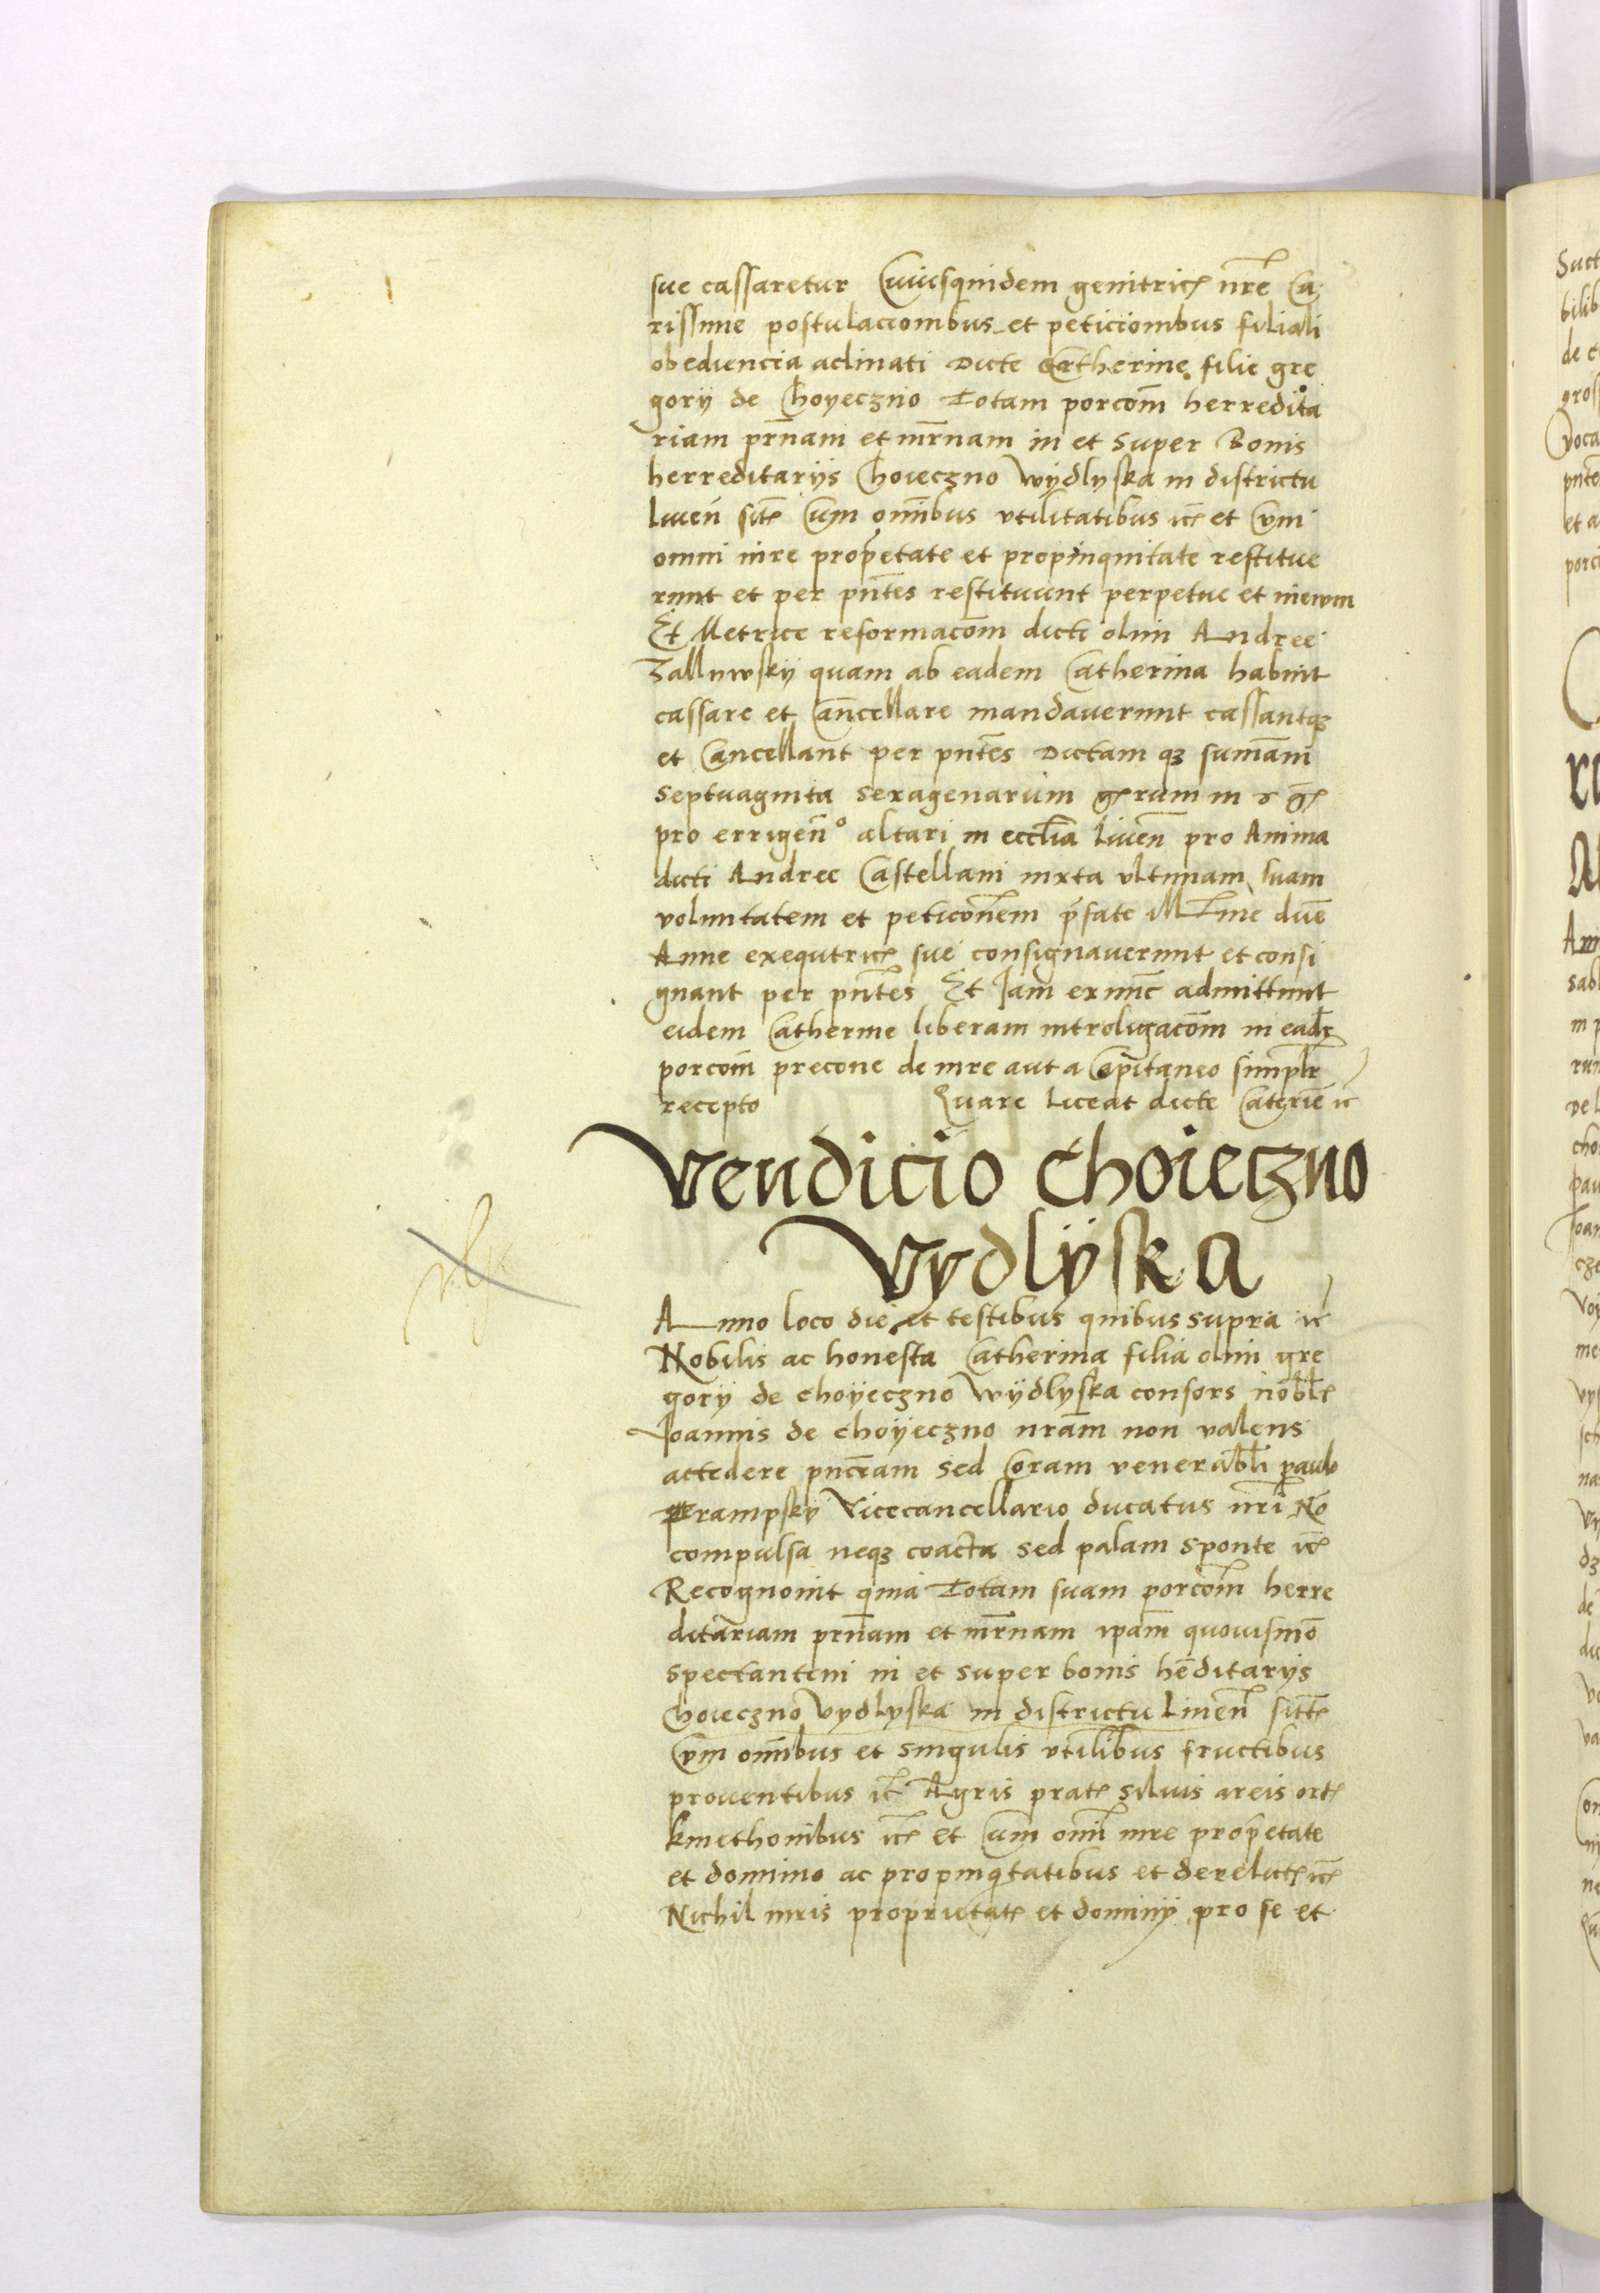 sue cassaretur Cuiusquidem genitric̄ nr̄e Ca
rissime postulaccionibus et peticionibus filiali
obediencia aclinati Dicte Catherine filie gre
gorij de Choyeczno Totam porcōm herredita
riam pr̄nam et mr̄nam in et super Bonis
herreditarijs Choieczno Wÿdlyska in districtu
liuen̄ sit̄ Cum om̄ibus vtilitatibus ic̄ et Cum
omni iure propetate et propinquitate restitue
runt et per pn̄tes restituunt perpetue et in ewm
Et Metrice reformacōm dicti olim Andree
Zalluwskÿ quam ab eadem Catherina habuit
cassare et Cancellare mandauerunt cassantqꝫ
et Cancellant per pn̄tes Dictam qꝫ sum̄am
septuaginta sexagenarum gr̄rum in r g̅
pro errigen̄º altari in eccl̄ia liuen̄ pro Anima
dicti Andree Castellani iuxta vltimam suam
voluntatem et peticōnem p̄fate Ill̄me dn̄e
Anne exequtric̄ sue consignauerunt et consi
gnant per pn̄tes Et Iam exnūc admittunt
eidem Catherine liberam introligacōm in ead̄
porcōm precone de iure aut a Capitaneo simpl̄r
recepto Quare liceat dicte Caterīe ic̄
Vendicio Choieczno
Vydlÿska
Anno loco die et testibus quibus supra ic̄
Nobilis ac honesta Catherina filia olim gre
gorÿ de choÿeczno Wÿdlyska consors nobl̄
Ioannis de choÿeczno nr̄am non valens
accedere pn̄ciam sed Coram venerabl̄i paulo
prampskÿ Vicecancellario ducatus nr̄i No
compulsa neqꝫ coacta sed palam sponte ic̄
Recognouit quia Totam suam porcōm herre
ditariam pr̄nam et mr̄nam ip̄am quouismō
spectantem in et super bonis hēditarijs
Choieczno Vydlyska in districtu Liuen̄ sit̄
Cum om̄ibus et singulis vtilibus fructibus
prouentibus ic̄ Agris prat̄ siluis areis ort̄
kmethonibus ic̄ et Cum om̄i iure propetate
et dominio ac propinqtatibus et derelict̄ ic̄
Nichil iuris proprietat̄ et dominÿ pro se et